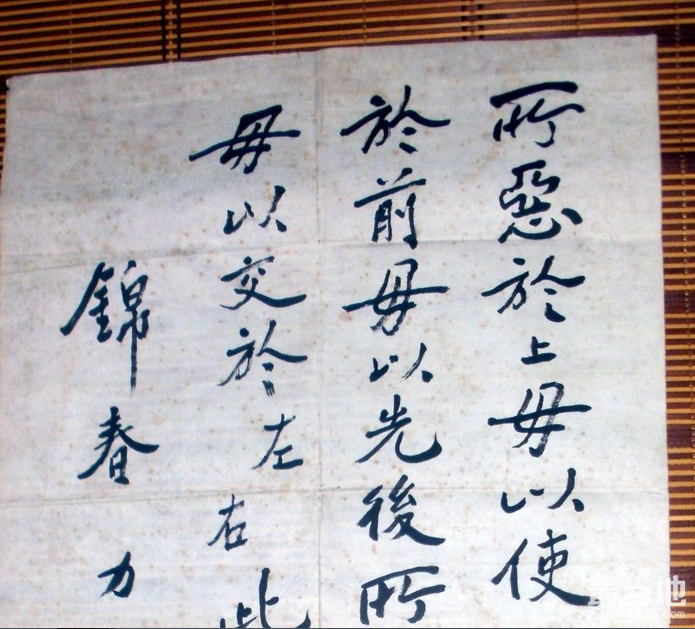 所惡於上毋以使
於前毋以先後所
毋以交於左右此
錦春力